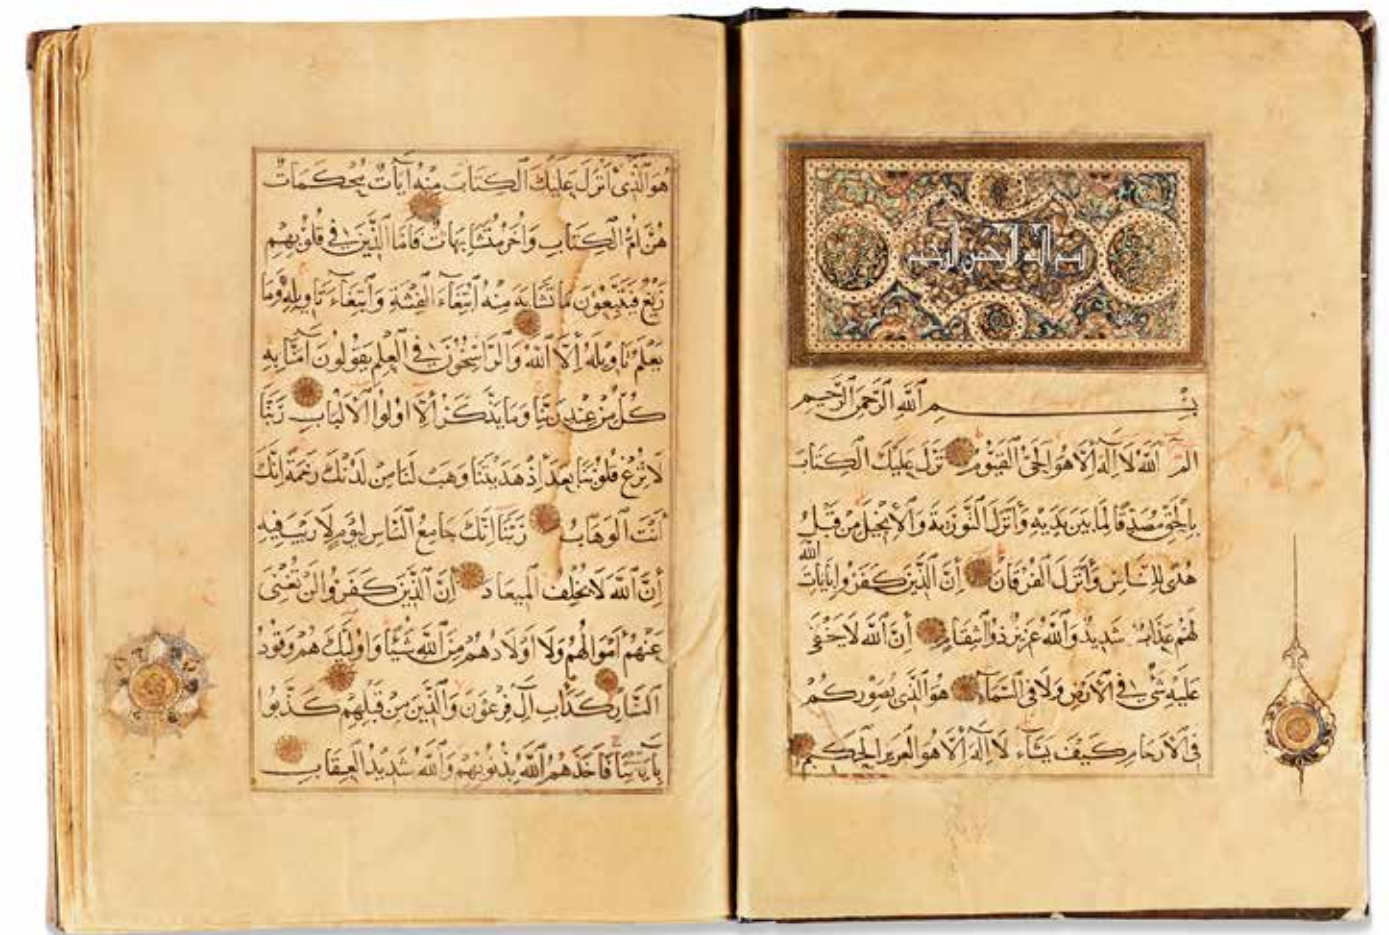 بسم الله الرحمن الرحيم
بِسْمِ اللَّهِ الرَّحْمَنِ الرَّحِيمِ
الم اللَّه لَا إِلَهَ إِلَّا هُوَ الحَيُّ القَيُّومُ نَزَّلَ عَلَيْكَ الكِتَابَ
بِالحَقِّ مُصَدِّقًا لِمَا بَيْنَ يَدَيْهِ وَأَنْزَلَ التَّوْرَيةَ وَالإِنْجِيلَ مِنْ قَبْلُ
هُدًى لِلنَّاسِ وَأَنْزَلَ الفُرْقَانَ إِنَّ الَّذِينَ كَفَرُوا بِآيَاتِ اللَّه
لَهُمْ عَذَابٌ شَدِيدٌ وَاللَّهُ عَزِيزٌ ذُو انْتِقَامٍ إِنَّ اللَّهَ لَا يَخْفَى
عَلَيْهِ شَيْءٌ فِي الأَرْضِ وَلَا فِي السَّمَاءِ هُوَ الَّذِي يُصَوِّرُكُمْ
فِي الأَرْحَامِ كَيْفَ يَشَاءُ لَا إِلَهَ إِلَّا هُوَ العَزِيزُ الحَكِيمُ
هُوَ الَّذِي أَنْزَلَ عَلَيْكَ الكِتَابَ مِنْهُ آيَاتٌ مُحْكَمَاتٌ
هُنَّ أُمُّ الكِتَابِ وَأُخَرُ مُتَشَابِهَاتٌ فَأَمَّا الَّذِينَ فِي قُلُوبِهِمْ
زَيْغٌ فَيَتَّبِعُونَ مَا تَشَابَهَ مِنْهُ ابْتِغَاءَ الفِتْنَةِ وَابْتِغَاءَ تَأْوِيلِهِ وَمَا
يَعْلَمُ تَأْوِيلَهُ إِلَّا اللَّهُ وَالرَّاسِخُونَ فِي العِلْمِ يَقُولُونَ آمَنَّا بِهِ
كُلٌّ مِنْ عِنْدِ رَبِّنَا وَمَا يَذَّكَّرُ إِلَّا أُولُوا الأَلْبَابِ رَبَّنَا
لَا تُزِغْ قُلُوبَنَا بَعْدَ إِذْ هَدَيْتَنَا وَهَبْ لَنَا مِنْ لَدُنْكَ رَحْمَةً إِنَّكَ
أَنْتَ الوَهَّابُ رَبَّنَا إِنَّكَ جَامِعُ النَّاسِ لِيَوْمٍ لَا رَيْبَ فِيهِ
إِنَّ اللَّهَ لَا يُخْلِفُ المِيعَادَ إِنَّ الَّذِينَ كَفَرُوا لَنْ تُغْنِيَ
عَنْهُمْ أَمْوَالُهُمْ وَلَا أَوْلَادُهُمْ مِنَ اللَّهِ شَيْئًا وَأُولَئِكَ هُمْ وَقُودُ
النَّارِ كَدَأْبِ آلِ فِرْعَوْنَ وَالَّذِينَ مِنْ قَبْلِهِمْ كَذَّبُوا
بِآيَاتِنَا فَأَخَذَهُمُ اللَّهُ بِذُنُوبِهِمْ وَاللَّهُ شَدِيدُ العِقَابِ